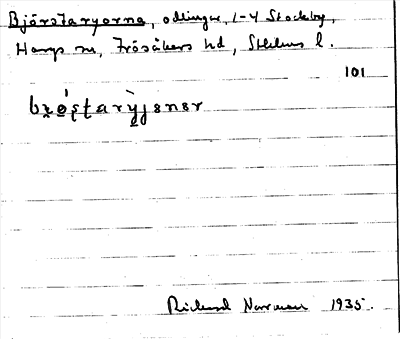 Björstaryorna, odlingar, 1-4 Stockby,
Hargs sn, Frösåkers hd, Sthlms l.
101
Rickard Norrman 1935.